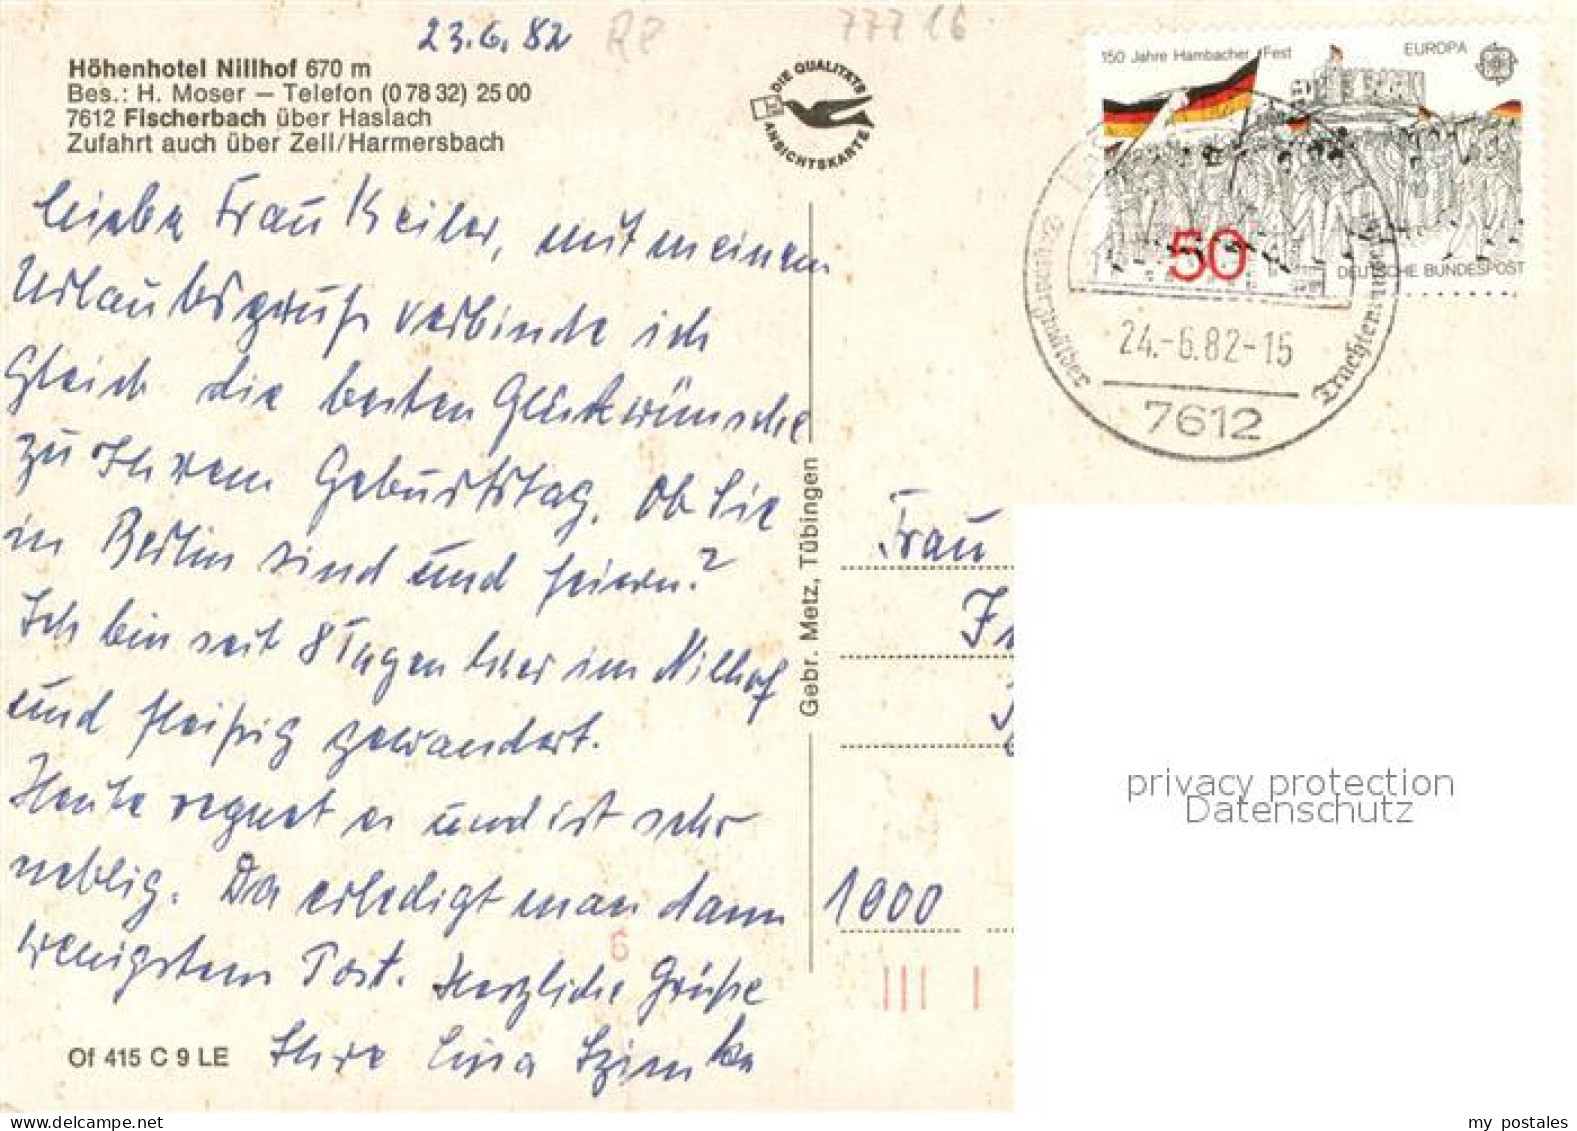 23.6.82
RP
77716
Höhenhotel Nillhof 670 m
Bes.: H. Moser – Telefon (0 78 32) 25 00
7612 Fischerbach über Haslach
Zufahrt auch über Zell/Harmersbach
DIE QUALITÄTS
ANSICHTSKARTE
150 Jahre Hambacher Fest
EUROPA
50
DEUTSCHE BUNDESPOST
24.-6.82-15
7612
Liebe Frau Keiler, mit meinem
Urlaubsgruß verbinde ich
Gleich die besten Glückwünsche
zu Ihrem Geburtstag. Ob Sie
in Berlin sind und feiern?
Ich bin seit 8 Tagen hier im Nillhof
und fleißig gewandert.
Heute regnet es und ist sehr
neblig. Da erledigt man dann
wenigstem Post. Herzliche Grüße
Ihre
Of 415 C 9 LE
Gebr. Metz, Tübingen
Frau
1000
6
privacy protection
Datenschutz
my postales